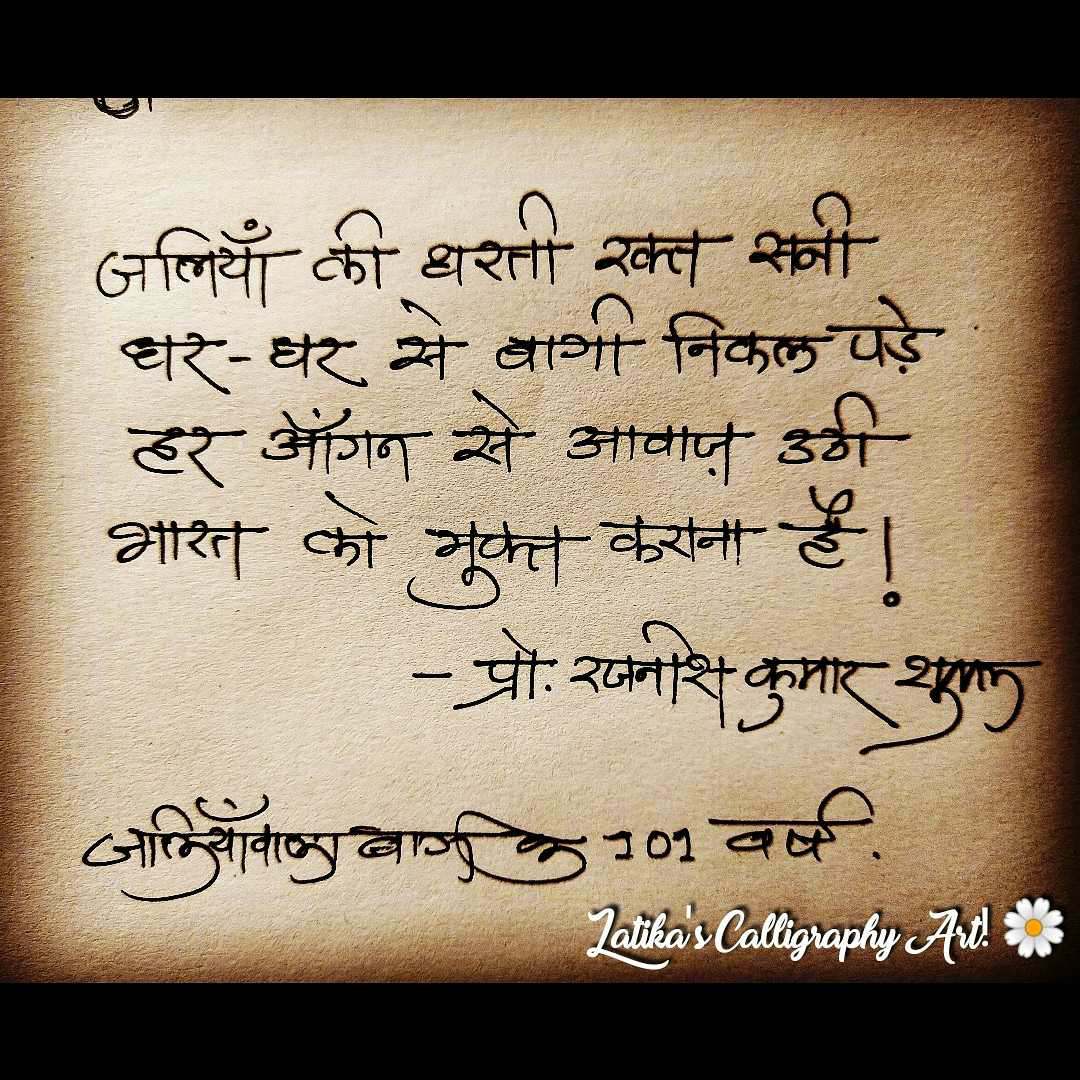 जलियाँ की धरती रक्त सनी
घर-घर से बागी निकल पड़े
हर आँगन से आवाज़ उठी
भारत को मुक्त कराना है!
- प्रो. रजनीश कुमार शुक्ल
जलियाँवाला बाग के 101 वर्ष.
Latika's Calligraphy Art!